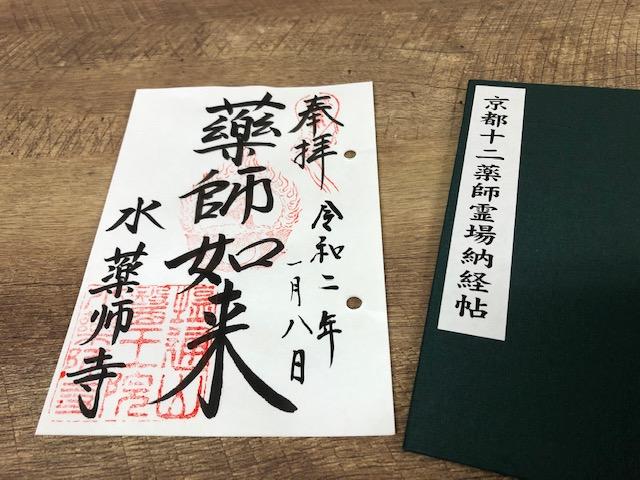 京都十二薬師霊場納経帖
奉拝
令和二年
一月八日
藥師如来
水薬师寺